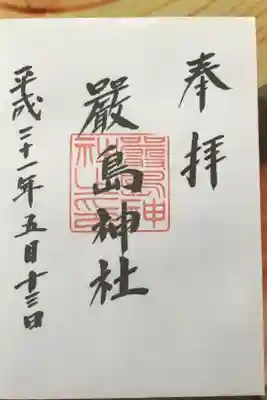 奉拝
嚴島神社
平成二十一年五月十三日